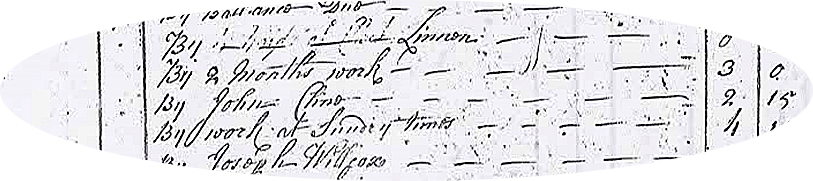 By Ballance Due
By Linnen 0
By 2 Months work 3 0
By John Cline 2 15
By work at Sundry times 4
By Joseph Willcox